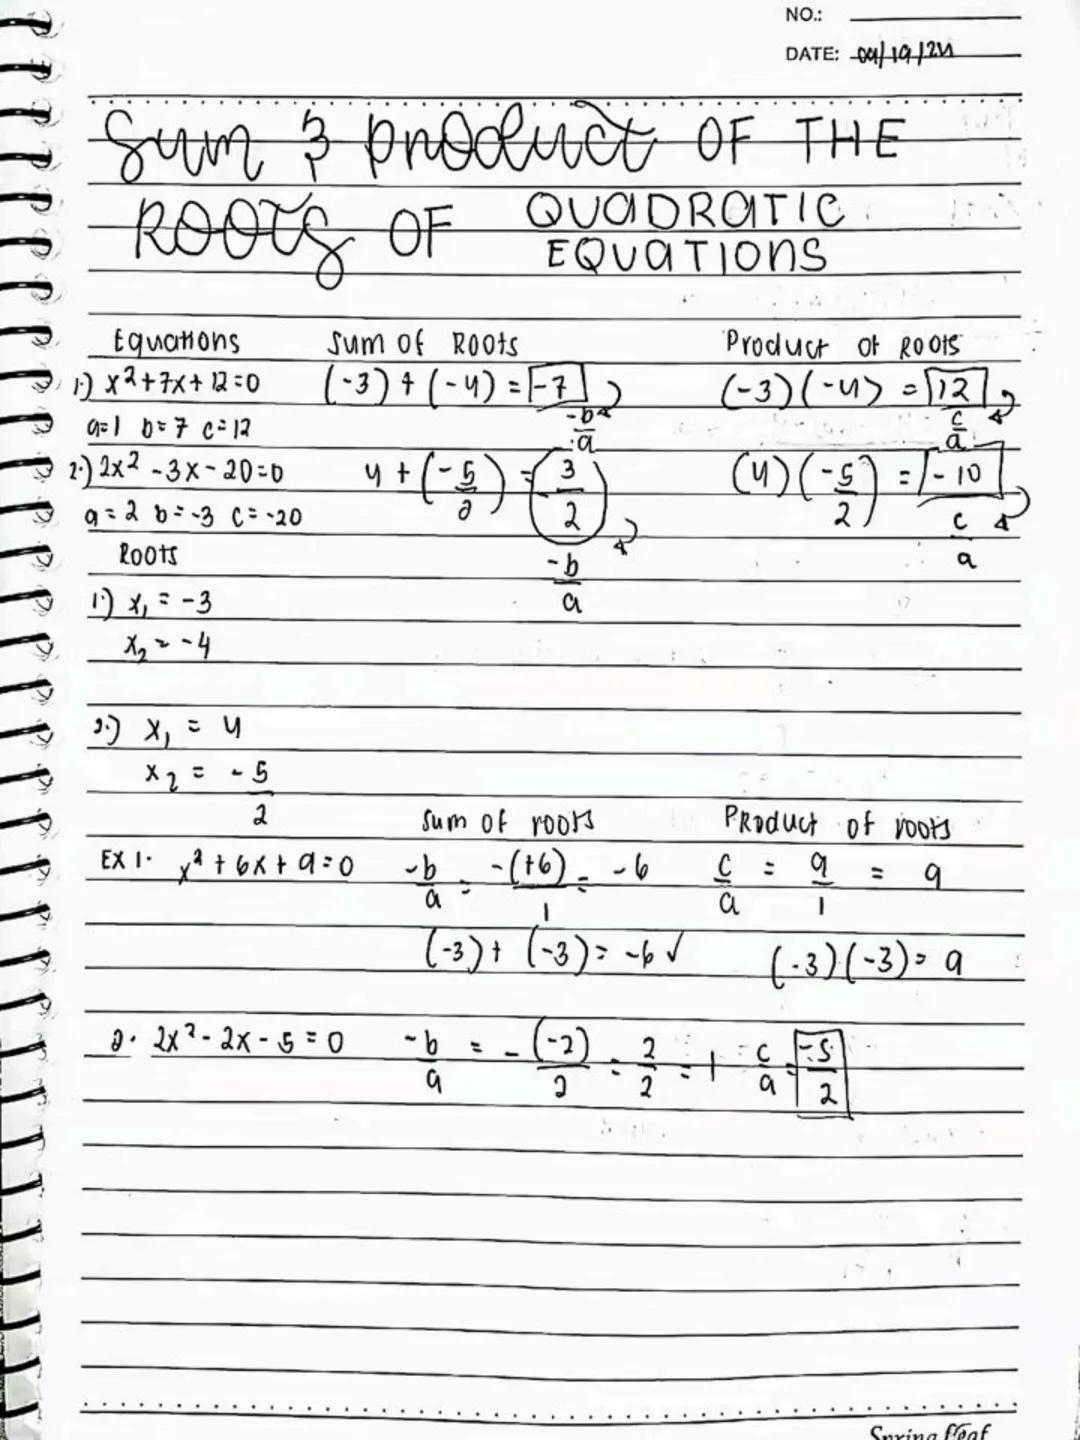 NO.:
DATE: 09/19/24
Sum & product OF THE
ROOTS OF QUADRATIC
EQUATIONS
Equations Sum of Roots Product of Roots
1.) x²+7x+12=0 (-3) + (-4) = -7 (-3)(-4) = 12
a=1 b=7 c=12 -b/a c/a
2.) 2x² -3x-20=0 4 + (-5/2) = 3/2 (4)(-5/2) = -10
a=2 b=-3 c=-20 -b/a c/a
Roots
1.) x₁ = -3
x₂ = -4
2.) x₁ = 4
x₂ = -5/2
Sum of roots Product of roots
EX 1. x²+6x+9=0 -b/a = -(+6)/1 = -6 c/a = 9/1 = 9
(-3)+(-3)=-6 ✓ (-3)(-3)=9
2. 2x²-2x-5=0 -b/a = -(-2)/2 = 2/2 = 1 c/a = -5/2
Spring Leaf